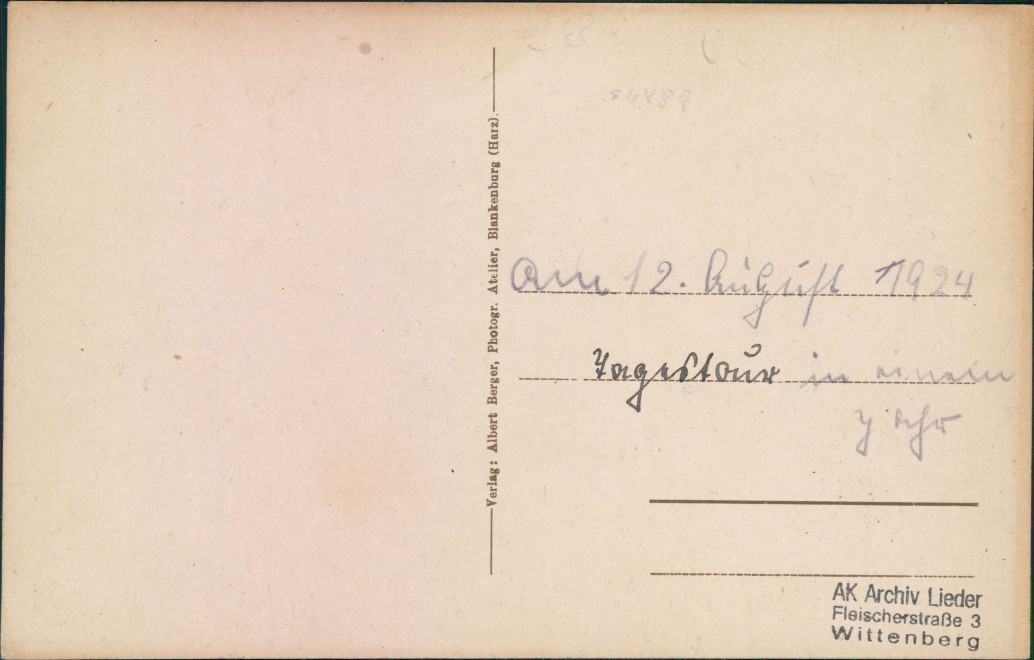 Verlag: Albert Berger, Photogr. Atelier, Blankenburg (Harz).
Am 12. August 1924
Tagestour in einem
Jahr
AK Archiv Lieder
Fleischerstraße 3
Wittenberg